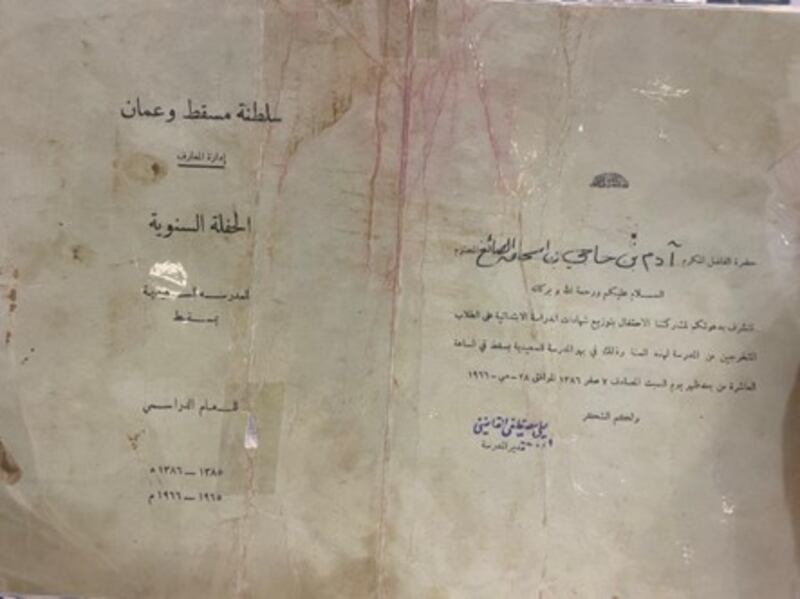 سلطنة مسقط وعمان
إدارة المعارف
الحفلة السنوية
المدرسة السعيدية
بمسقط
للعام الدراسي
١٣٨٥ — ١٣٨٦ ه
١٩٦٥ — ١٩٦٦ م
حضرة الفاضل المكرم آدم بن حاجي بن اسحاق الصائغ المحترم
السلام عليكم ورحمة الله وبركاته
نتشرف بدعوتكم لمشاركتنا الاحتفال بتوزيع شهادات الدراسة الابتدائية على الطلاب
المتخرجين من المدرسة لهذه السنة وذلك في بهو المدرسة السعيدية بمسقط في الساعة
العاشرة من بعد ظهر يوم السبت المصادف ٧ صفر ١٣٨٦ الموافق ٢٨ — مي — ١٩٦٦
ولكم الشكر
مدير المدرسة